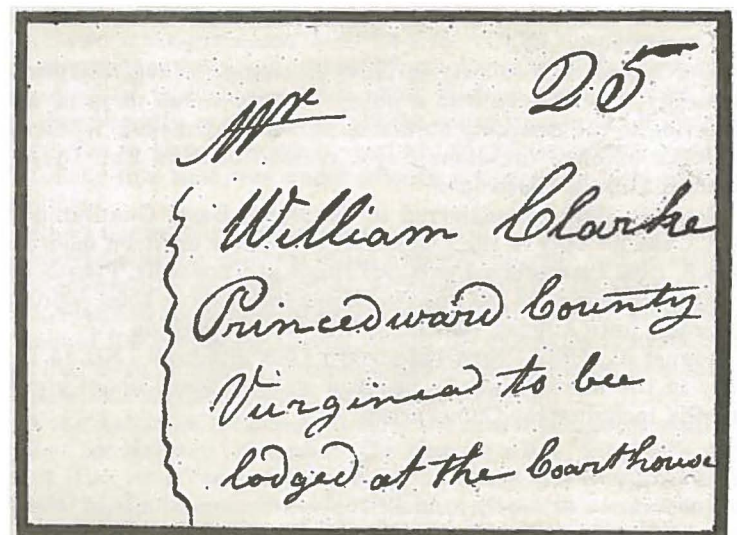 25
Mr
William Clarke
Princedward County
Virginia to bee
lodged at the Coarthouse